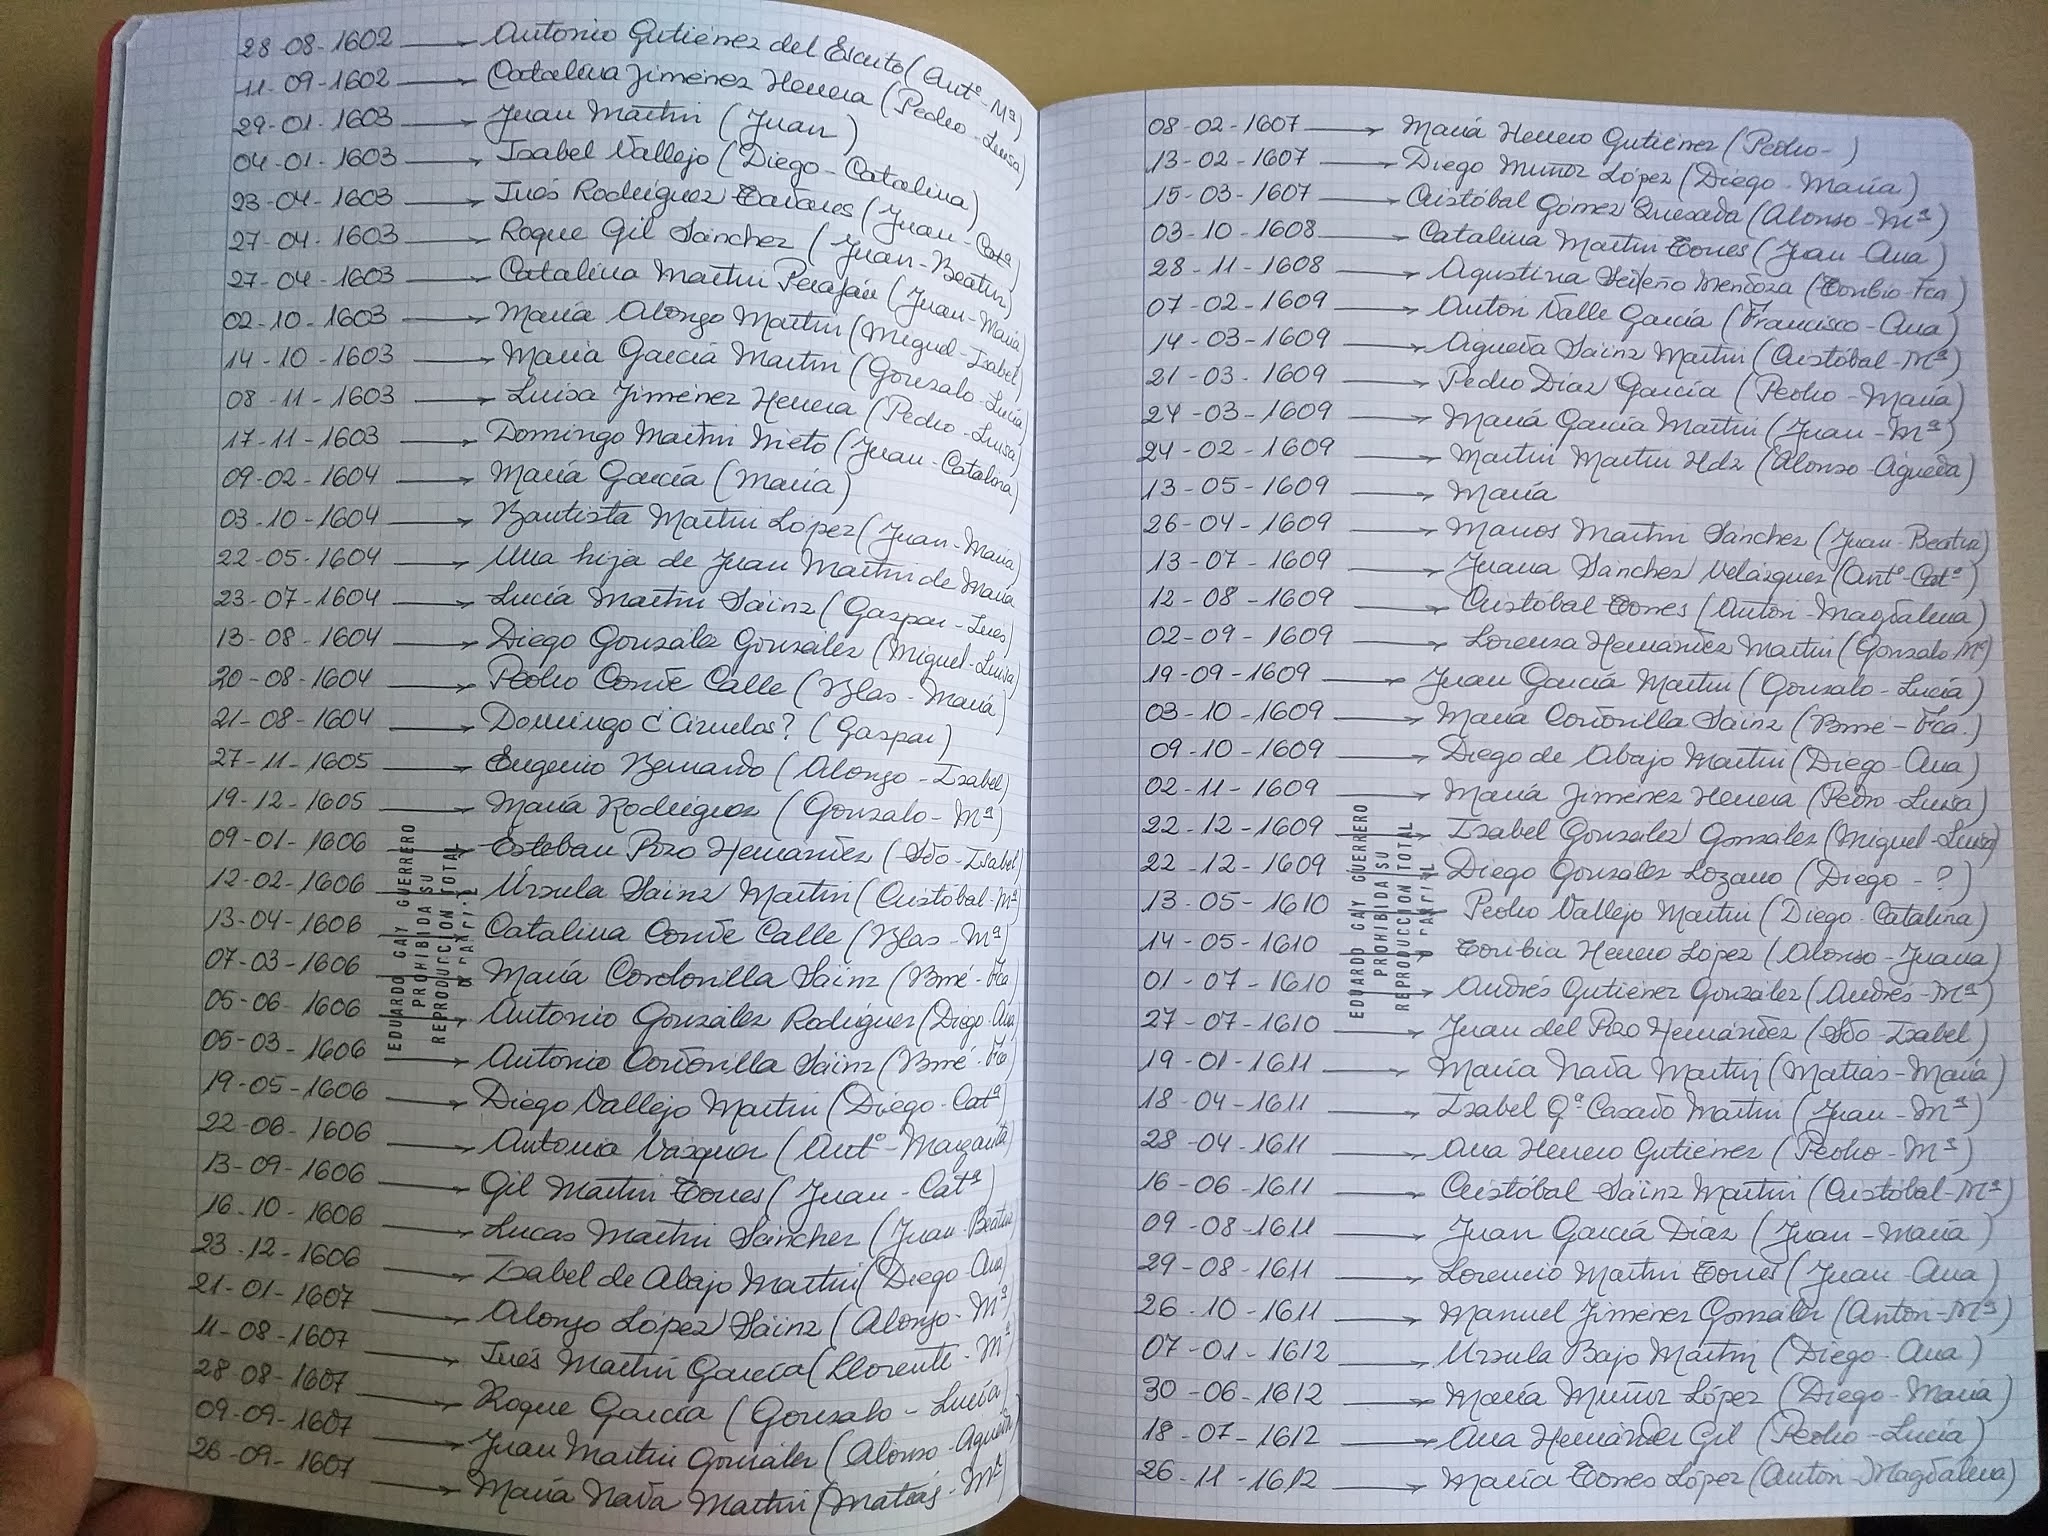 28-08-1602 → Antonio Gutiérrez del Escrito (Antº-Mª)
11-09-1602 → Catalina Jiménez Herrera (Pedro-Luisa)
29-01-1603 → Juan Martín (Juan)
04-01-1603 → Isabel Vallejo (Diego-Catalina)
23-04-1603 → Inés Rodríguez (Juan-Catª
27-04-1603 → Roque Gil Sánchez (Juan-Beatriz)
27-04-1603 → Catalina Martín Perafán (Juan-María
02-10-1603 → María Alonzo Martín (Miguel-Isabel)
14-10-1603 → María García Martín (Gonzalo-Lucía
08-11-1603 → Luisa Jiménez Herrera (Pedro-Luisa)
17-11-1603 → Domingo Martín Nieto (Juan-Catalina)
09-02-1604 → María García (María)
03-10-1604 → Bautista Martín López (Juan-María
22-05-1604 → Una hija de Juan Martín de María
23-07-1604 → Lucía Martín Sáinz (Gaspar-Inés)
13-08-1604 → Diego Gonzále González (Miguel-Luisa)
20-08-1604 → Pedro Conde Calle (Blas-María)
21-08-1604 → Domingo ¿Ciruelos? (Gaspar)
27-11-1605 → Eugenio Bernardo (Alonzo-Isabel)
19-12-1605 → María Rodríguez (Gonzalo-Mª)
09-01-1606 → Esteban Pozo Hernández (Sdo-Isabel)
12-02-1606 → Úrsula Sáinz Martín (Cristóbal-Mª)
13-04-1606 → Catalina Conde Calle (Blas-Mª)
07-03-1606 → María Cordonilla Sáinz (Bmé-Fca
05-06-1606 → Antonio González Rodríguez (Diego-Ana
05-03-1606 → Antonio Cordonilla Sáinz (Bmé-Fca
19-05-1606 → Diego Vallejo Martín (Diego-Catª)
22-08-1606 → Antonia Vázquez (Antº-Margarita)
13-09-1606 → Gil Martín Torres (Juan-Catª)
16-10-1606 → Lucas Martín Sánchez (Juan-Beatriz
23-12-1606 → Isabel de Abajo Martín (Diego-Ana)
21-01-1607 → Alonzo López Sáinz (Alonzo-Mª)
11-08-1607 → Inés Martín García (Llorente-Mª
28-08-1607 → Roque García (Gonzalo-Lucía
09-09-1607 → Juan Martín González (Alonso-Agueda)
26-09-1607 → María Nada Martín (Matías-Mª)
EDUARDO GAY GUERRERO
PROHIBIDA SU
REPRODUCCION TOTAL
O PARCIAL
08-02-1607 → María Herrero Gutiérrez (Pedro- )
13-02-1607 → Diego Muñoz López (Diego-María)
15-03-1607 → Cristóbal Gómez Quesada (Alonso-Mª)
03-10-1608 → Catalina Martín Torres (Juan-Ana)
28-11-1608 → Agustina Mendoza (Toribio-Fca)
07-02-1609 → Antón Valle García (Francisco-Ana)
14-03-1609 → Agueda Sáinz Martín (Cristóbal-Mª)
21-03-1609 → Pedro Díaz García (Pedro-María)
24-03-1609 → María García Martín (Juan-Mª)
24-02-1609 → Martín Martín Hdz (Alonso-Agueda)
13-05-1609 → María
26-04-1609 → Marcos Martín Sánchez (Juan-Beatriz)
13-07-1609 → Juana Sánchez Velázquez (Antº-Catª)
12-08-1609 → Cristóbal Torres (Antón-Magdalena)
02-09-1609 → Lorenza Hernández Martín (Gonzalo-Mª)
19-09-1609 → Juan García Martín (Gonzalo-Lucía)
03-10-1609 → María Cordonilla Sáinz (Bmé-Fca.)
09-10-1609 → Diego de Abajo Martín (Diego-Ana)
02-11-1609 → María Jiménez Herrera (Pedro-Luisa)
22-12-1609 → Isabel González González (Miguel-Luisa)
22-12-1609 → Diego González Lozano (Diego-?)
13-05-1610 → Pedro Vallejo Martín (Diego-Catalina)
14-05-1610 → Toribia Herrero López (Alonso-Juana)
01-07-1610 → Andrés Gutiérrez González (Andrés-Mª)
27-07-1610 → Juan del Pozo Hernández (Sdo-Isabel)
19-01-1611 → María Nada Martín (Matías-María)
18-04-1611 → Isabel Gª Casado Martín (Juan-Mª)
28-04-1611 → Ana Herrero Gutiérrez (Pedro-Mª)
16-06-1611 → Cristóbal Sáinz Martín (Cristóbal-Mª)
09-08-1611 → Juan García Díaz (Juan-María)
29-08-1611 → Lorencio Martín Torres (Juan-Ana)
26-10-1611 → Manuel Jiménez González (Antón-Mª)
07-01-1612 → Úrsula Bajo Martín (Diego-Ana)
30-06-1612 → María Muñoz López (Diego-María)
18-07-1612 → Ana Hernández Gil (Pedro-Lucía)
26-11-1612 → María Torres López (Antón-Magdalena)
EDUARDO GAY GUERRERO
PROHIBIDA SU
REPRODUCCION TOTAL
O PARCIAL